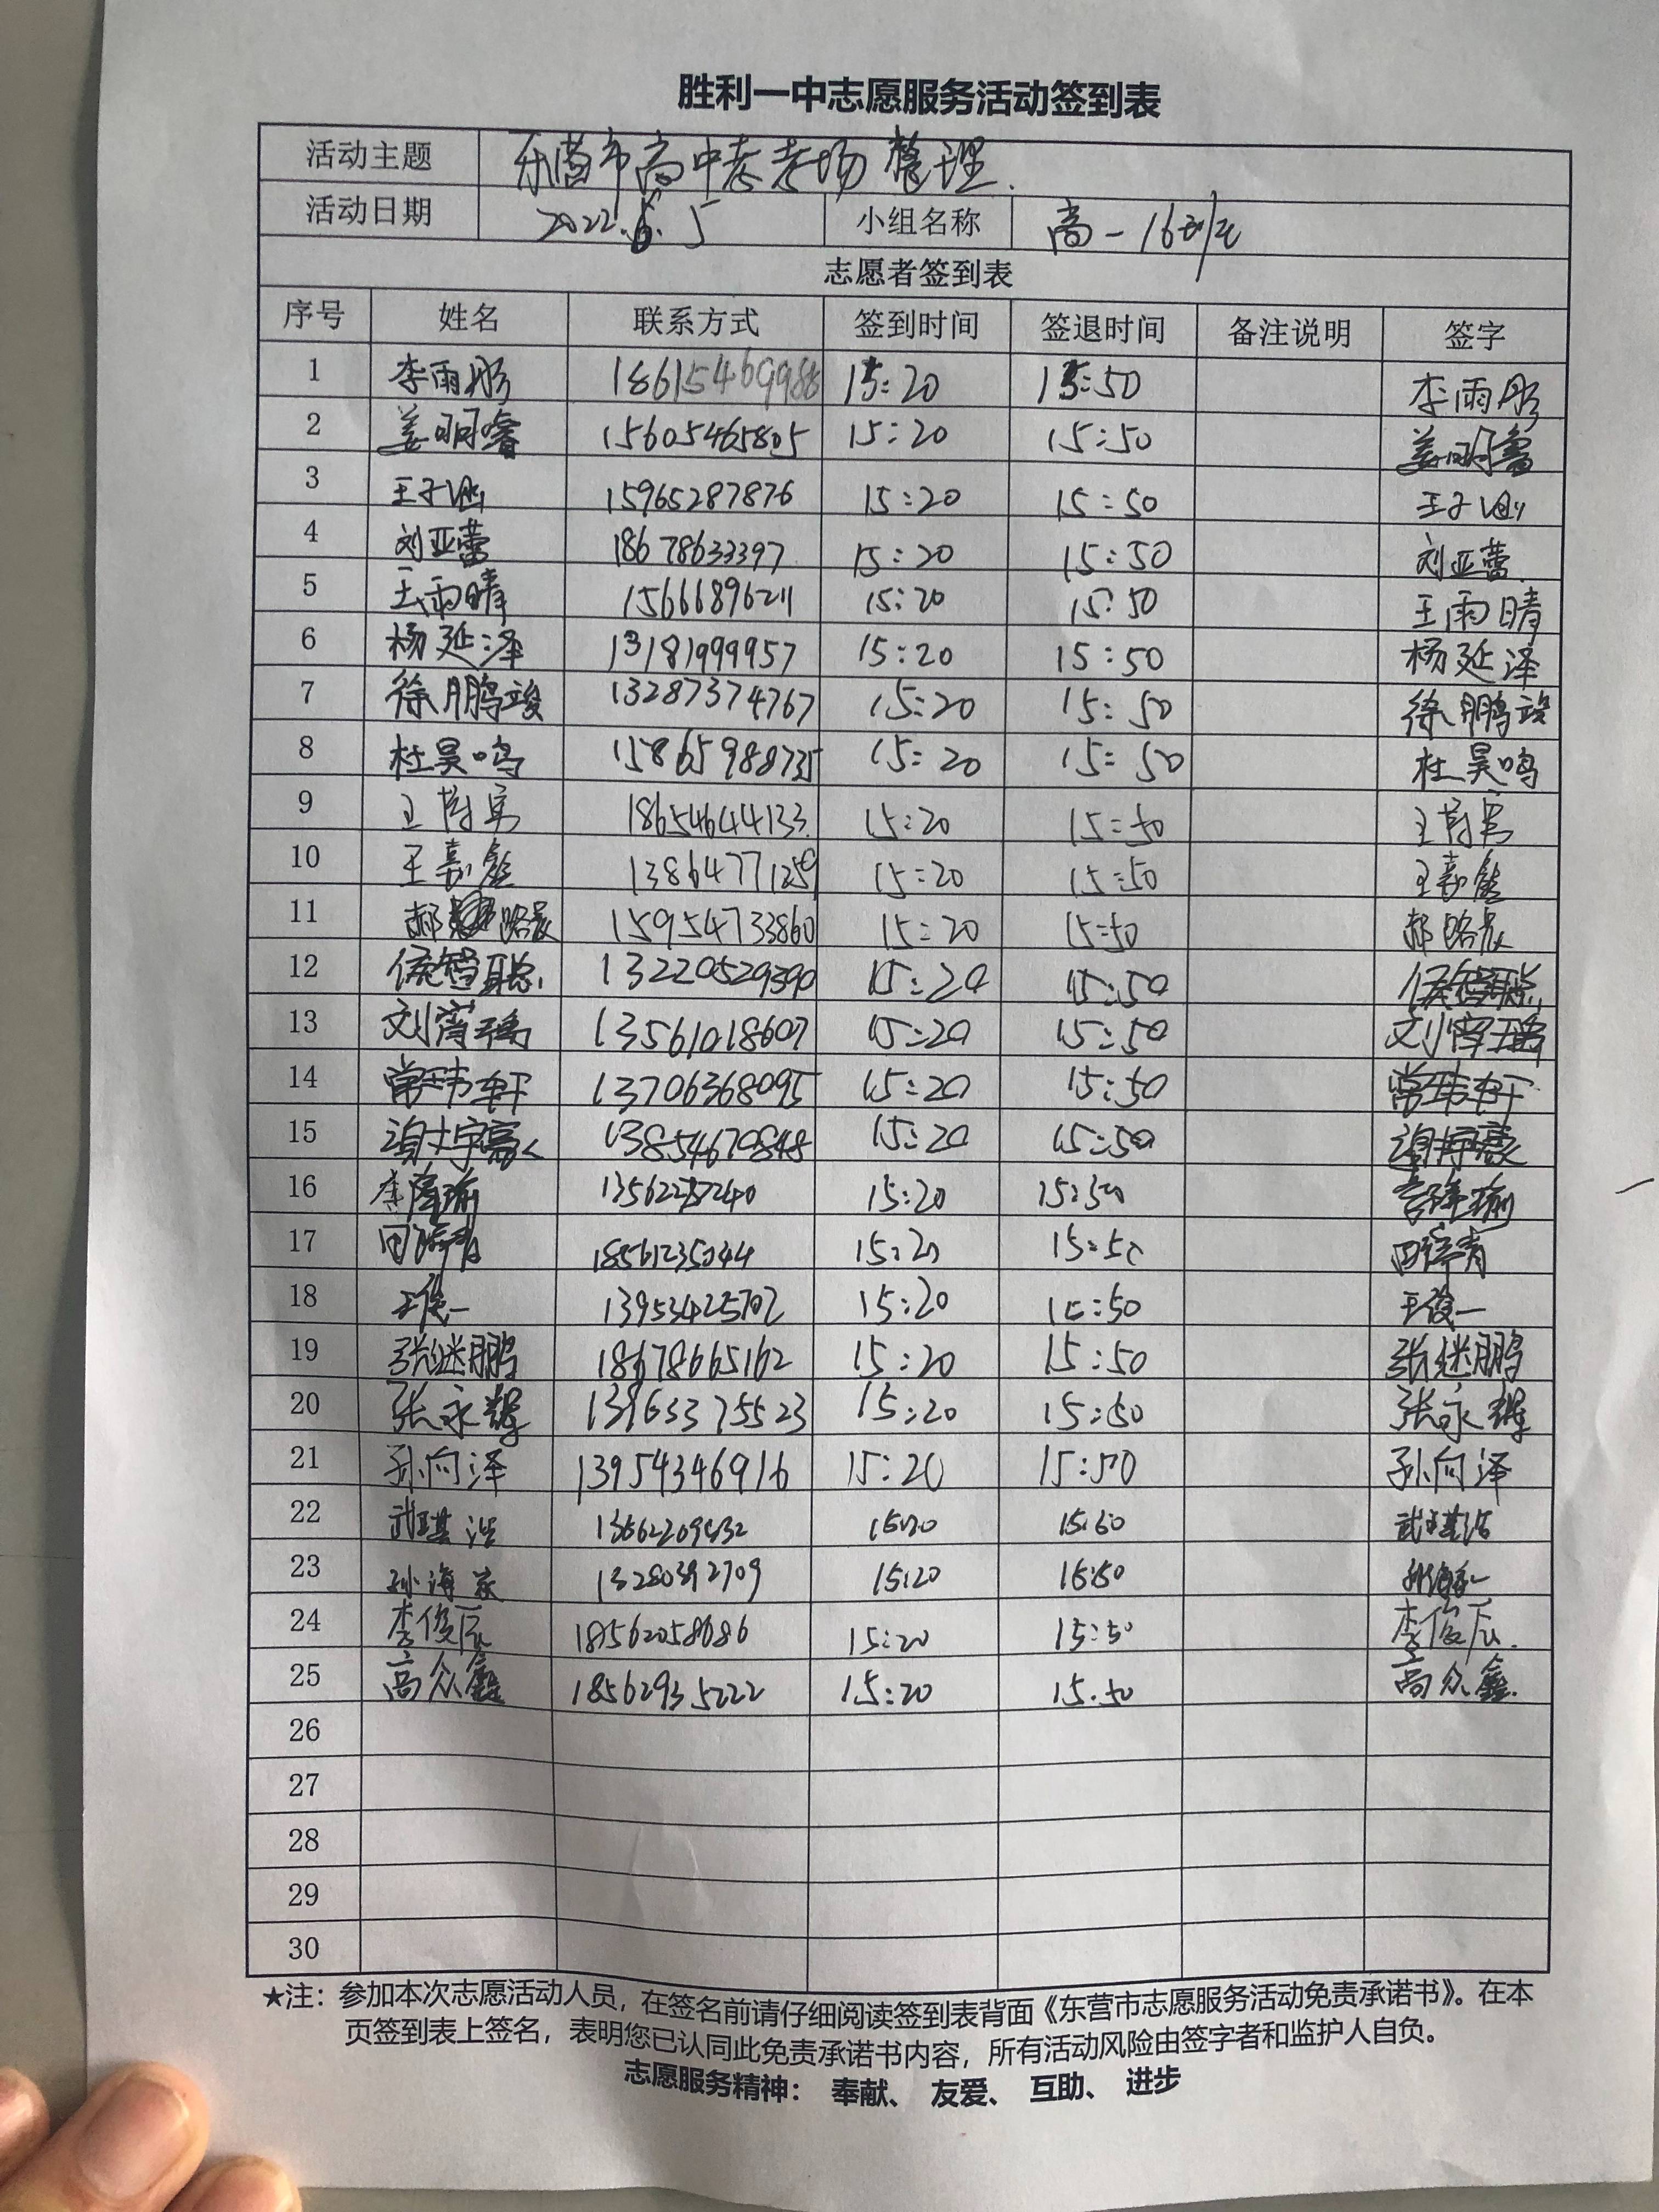 胜利一中志愿服务活动签到表
活动主题 东营市高中考考场整理.
活动日期 2022.6.5 小组名称 高一16班
志愿者签到表
序号 姓名 联系方式 签到时间 签退时间 备注说明 签字
1 李雨彤 18615469988 15:20 15:50 李雨彤
2 姜明睿 15605465805 15:20 15:50 姜明睿
3 王子涵 15965287876 15:20 15:50 王子涵
4 刘亚蕾 18678633397 15:20 15:50 刘亚蕾
5 王雨晴 15666896211 15:20 15:50 王雨晴
6 杨延泽 13181999957 15:20 15:50 杨延泽
7 徐鹏竣 13287374767 15:20 15:50 徐鹏竣
8 杜昊鸣 15865988735 15:20 15:50 杜昊鸣
9 18654644133 15:20 15:50
10 王嘉鑫 13864771259 15:20 15:50 王嘉鑫
11 15954733860 15:20 15:50
12 侯智聪 13220529390 15:20 15:50 侯智聪
13 13561018607 15:20 15:50
14 常玮轩 13706368095 15:20 15:50 常玮轩
15 谢宇豪 13854670848 15:20 15:50 谢宇豪
16 15:20 15:50
17 18561235044 15:20 15:50
18 王俊一 13953425702 15:20 15:50 王俊一
19 张继鹏 18678665162 15:20 15:50 张继鹏
20 张永耀 13963375523 15:20 15:50 张永耀
21 孙向泽 13954346916 15:20 15:50 孙向泽
22 武琪浩 15:20 15:50 武琪浩
23 15:20 15:50
24 李俊辰 18562058686 15:20 15:50 李俊辰.
25 高众鑫 18562935222 15:20 15.50 高众鑫.
26
27
28
29
30
★注：参加本次志愿活动人员，在签名前请仔细阅读签到表背面《东营市志愿服务活动免责承诺书》。在本
页签到表上签名，表明您已认同此免责承诺书内容，所有活动风险由签字者和监护人自负。
志愿服务精神： 奉献、 友爱、 互助、 进步